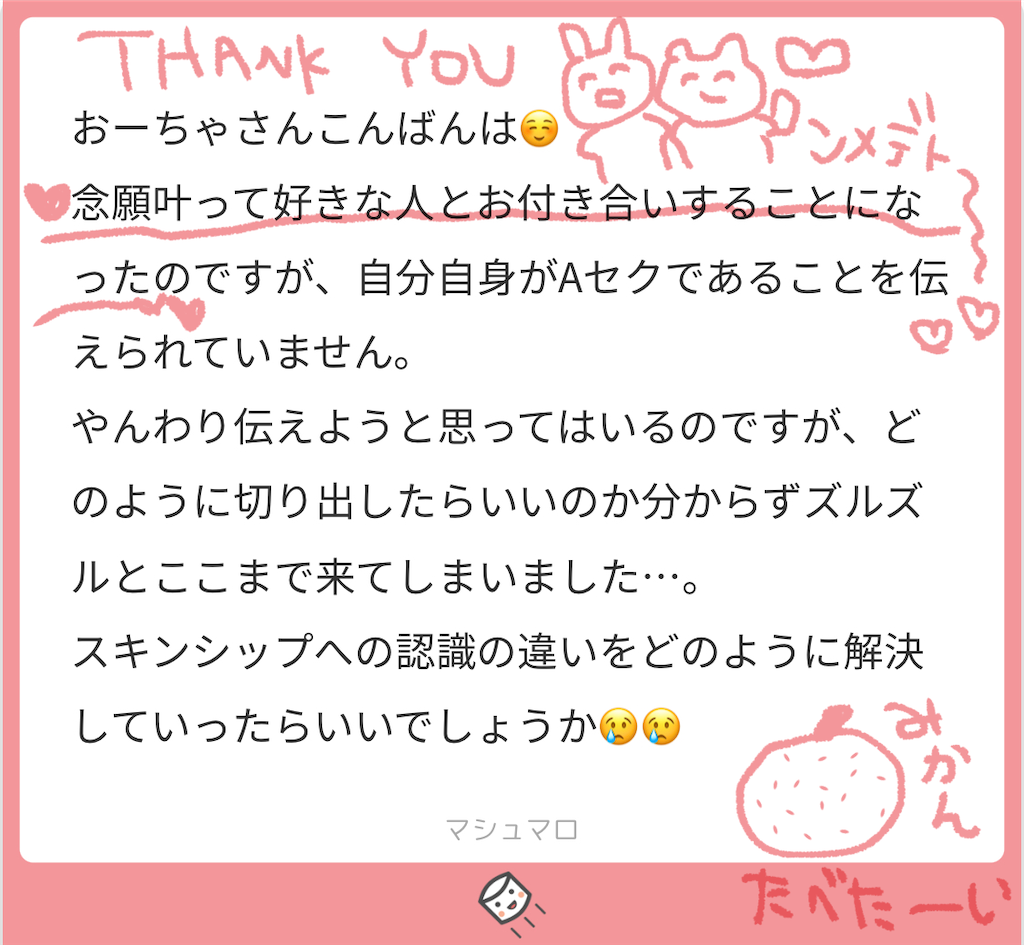 THANK YOU
おーちゃさんこんばんは☺️
オメデトーーー
念願叶って好きな人とお付き合いすることにな
ったのですが、自分自身がAセクであることを伝
えられていません。
やんわり伝えようと思ってはいるのですが、ど
のように切り出したらいいのか分からずズルズ
ルとここまで来てしまいました…。
スキンシップへの認識の違いをどのように解決
していったらいいでしょうか😢😢
みかん
マシュマロ
たべたーい